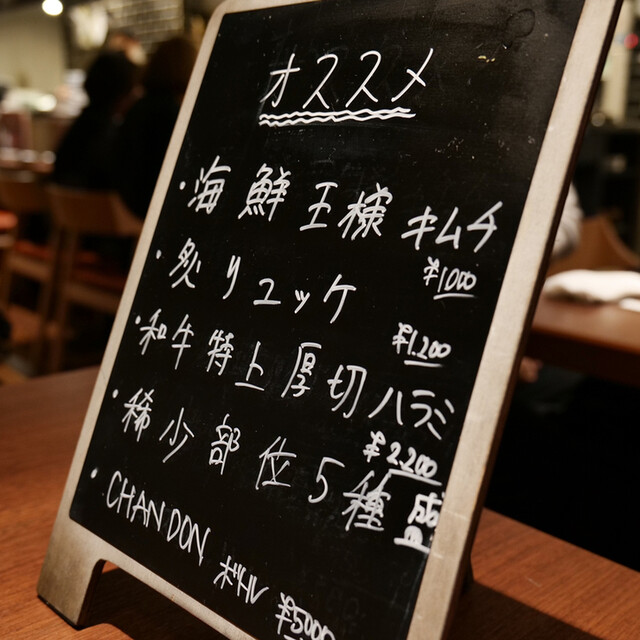 オススメ
・海鮮王様キムチ
¥1000
・炙リユッケ
¥1.200
・和牛特上厚切ハラミ
¥2.200
・稀少部位5種盛
・CHANDON ボトル ¥5000